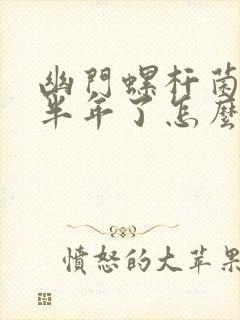 幽門螺杆菌
半年了怎麼
憤怒的大苹果